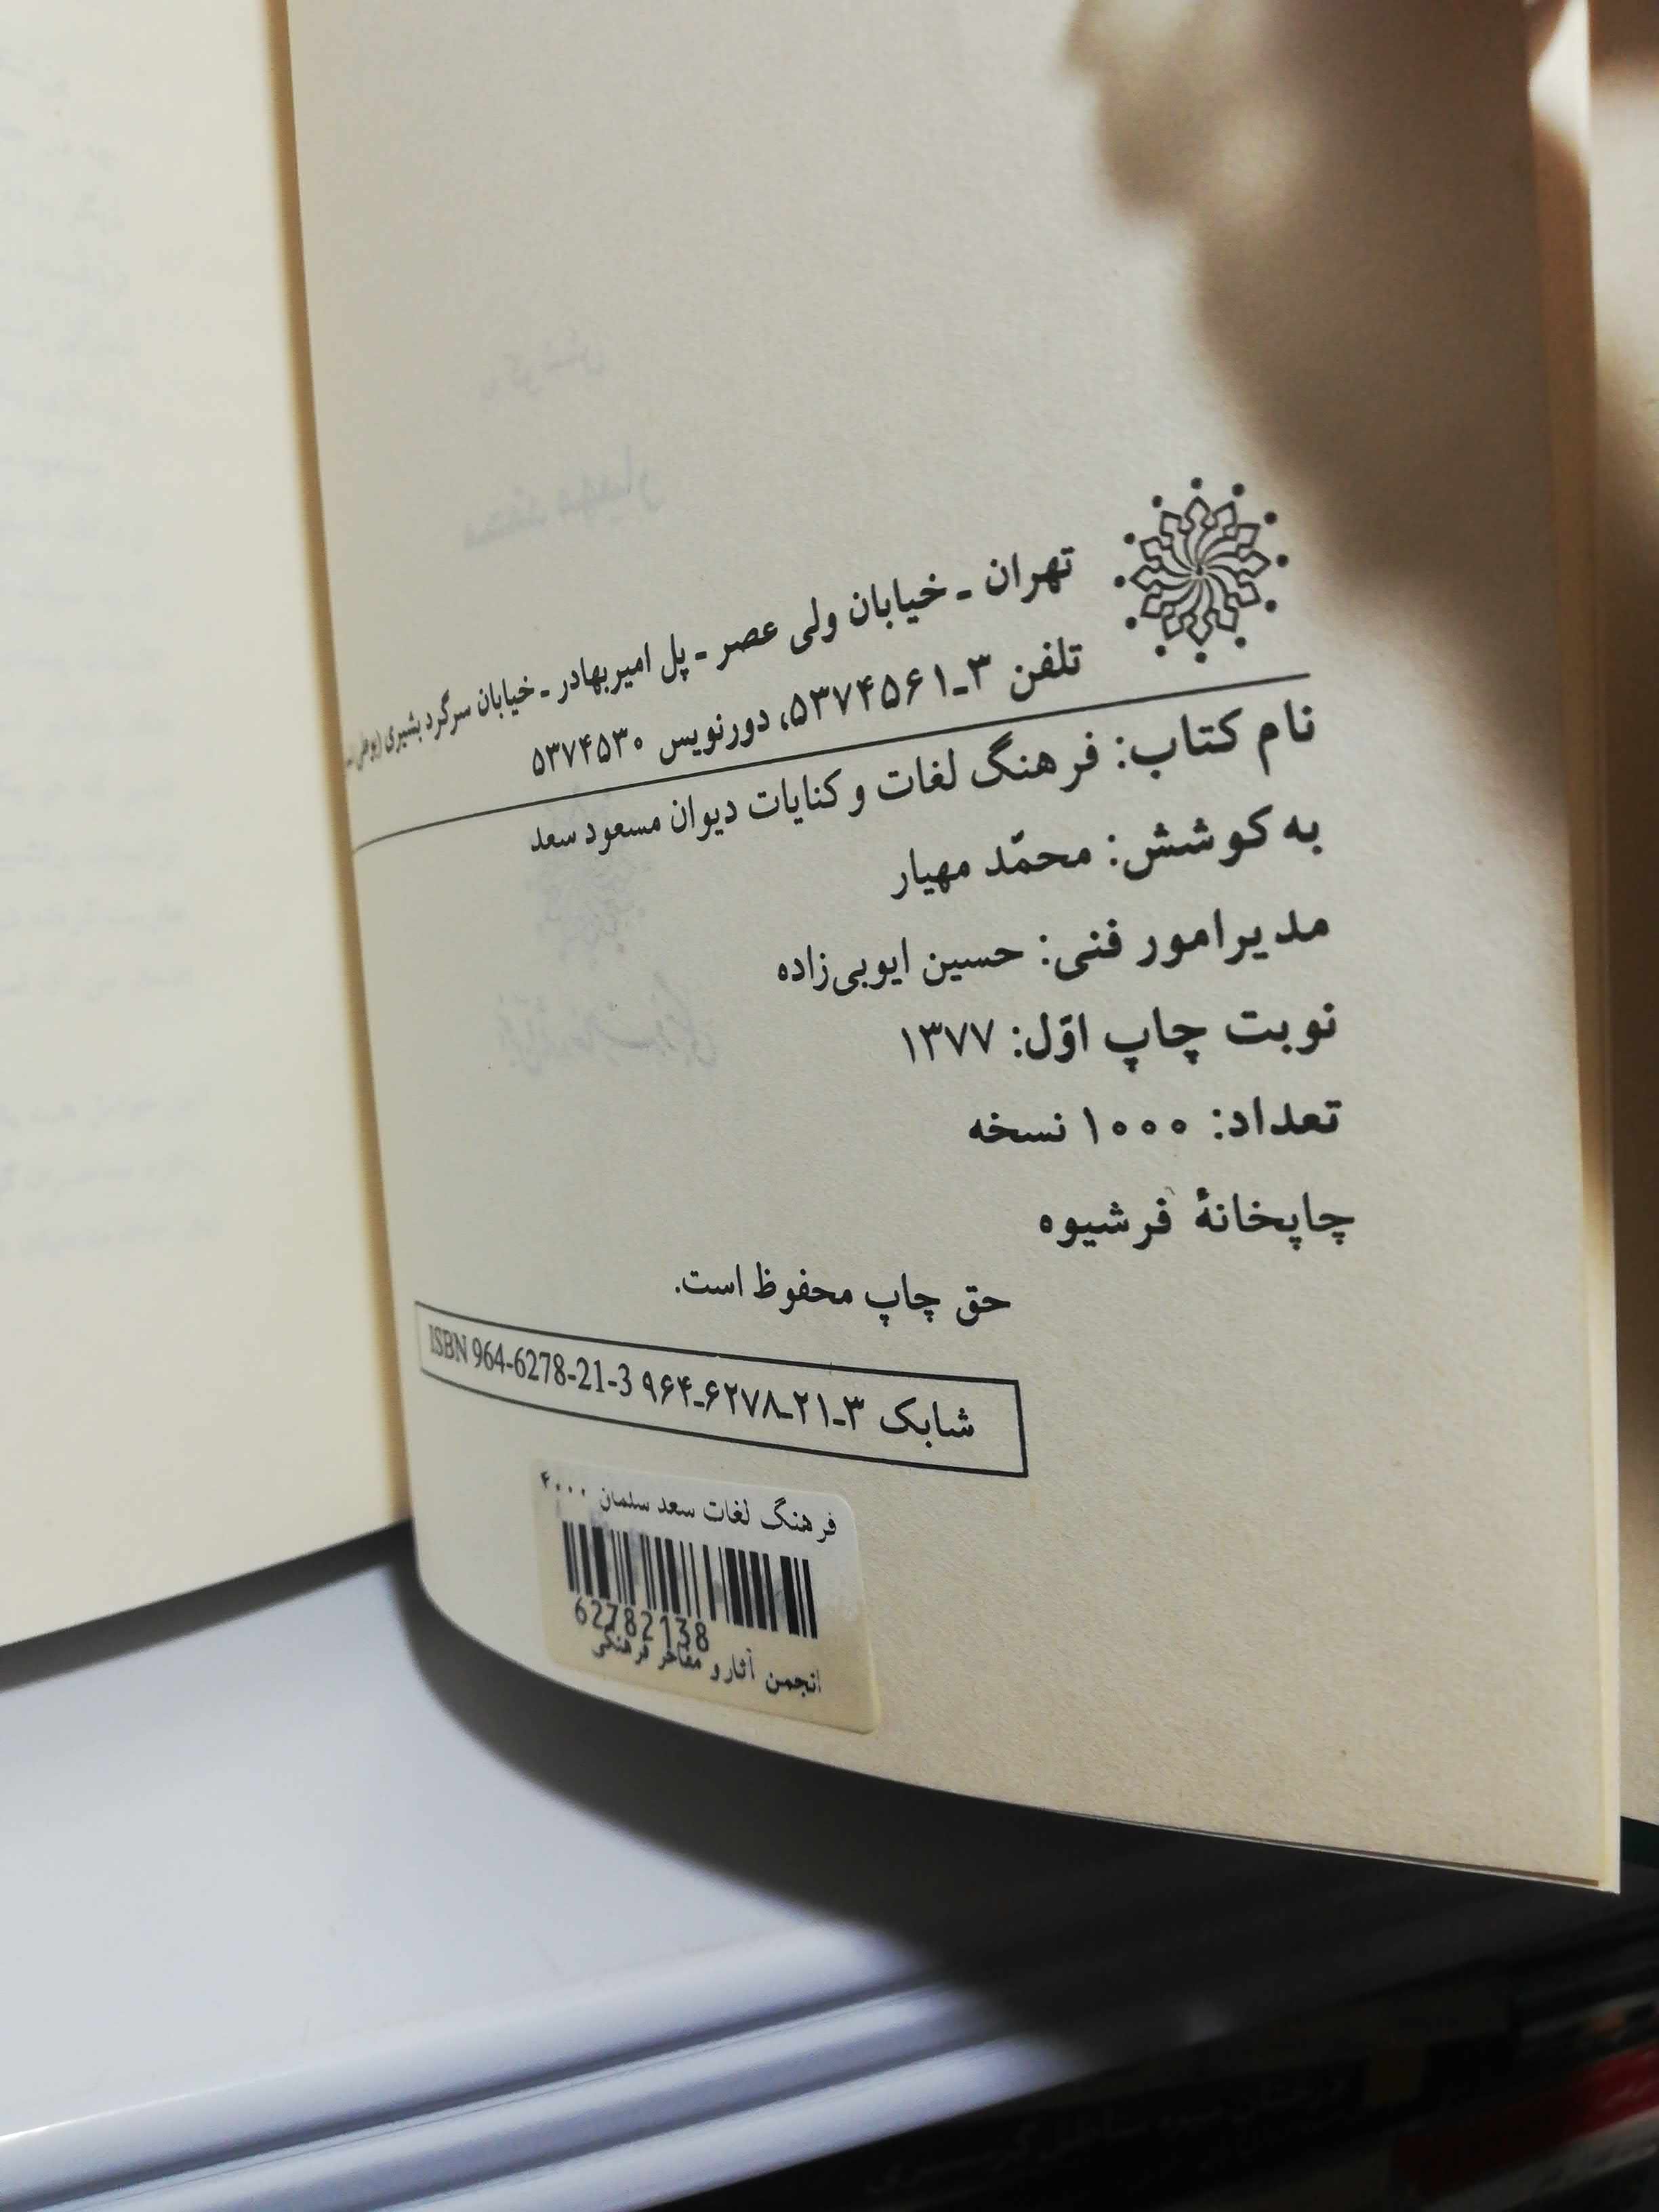 تهران ـ خیابان ولی عصر ـ پل امیربهادر ـ خیابان سرگرد بشیری
تلفن ۳ـ۵۳۷۴۵۶۱، دورنویس ۵۳۷۴۵۳۰
نام کتاب: فرهنگ لغات و کنایات دیوان مسعود سعد
به کوشش: محمّد مهیار
مدیرامور فنی: حسین ایوبی‌زاده
نوبت چاپ اوّل: ۱۳۷۷
تعداد: ۱۰۰۰ نسخه
چاپخانهٔ فرشیوه
حق چاپ محفوظ است.
شابک ۳ـ۲۱ـ۶۲۷۸ـ۹۶۴ ISBN 964-6278-21-3
فرهنگ لغات سعد سلمان ۴۰۰۰
62782138
انجمن آثار و مفاخر فرهنگی